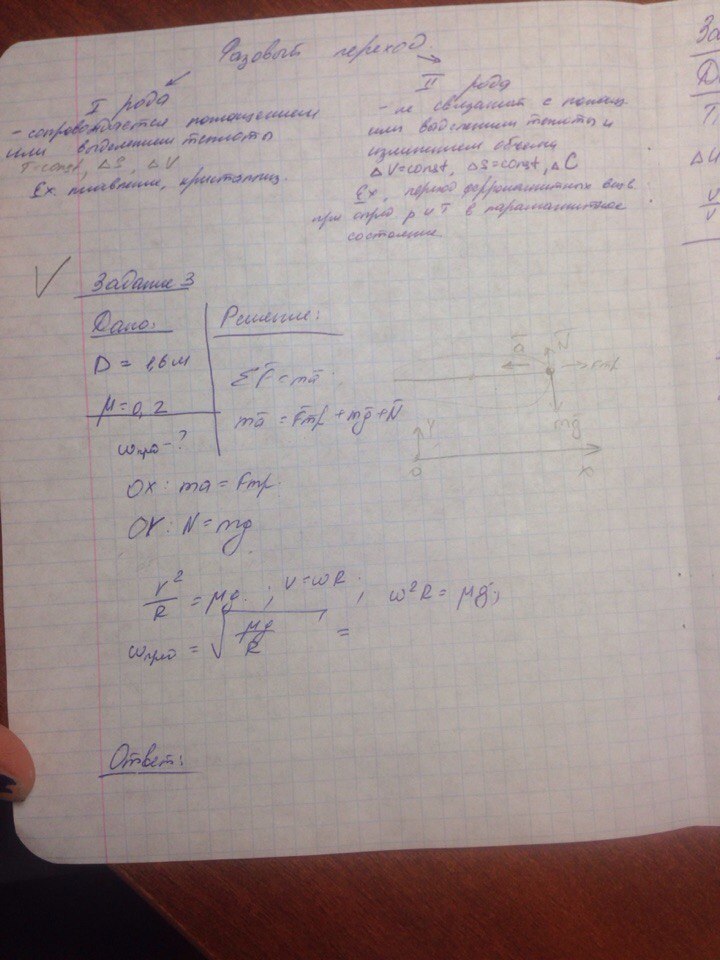 Фазовый переход.
I рода
- сопровождается поглощением
или выделением теплоты
T=const, ΔS, ΔV
Ex. плавление, кристаллиз.
II рода
- не связанный с поглощ
или выделением теплоты и
изменением объема
ΔV=const, ΔS=const, ΔC
Ex, период ферромагнитных вещ-в
при опред p и T в парамагнитное
состояние.
За
Д
T
ΔU
V
V
Задание 3
Дано:
D = 1,6 м
μ = 0,2
ωпред-?
Решение:
ΣF̄ = mā
mā = F̄тр + mḡ + N̄
ā N̄ Fтр
mḡ
Y
O X
OX: ma = Fтр.
OY: N = mg
V²/R = μg ; V = ωR ; ω²R = μg;
ωпред = √(μg/R) =
Ответ: